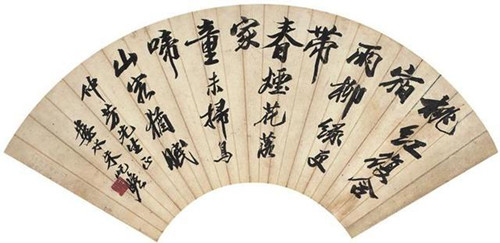 桃紅復含
宿
雨柳綠更
帶
春煙花落
家
童未掃鳥
啼
山客猶眠
仲芳先生正